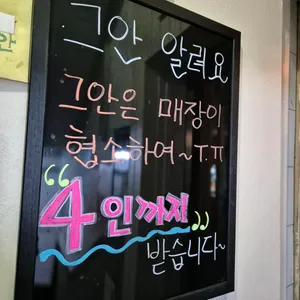 그안 알려요
그안은 매장이
협소하여~T.T
"4인까지"
받습니다~
안